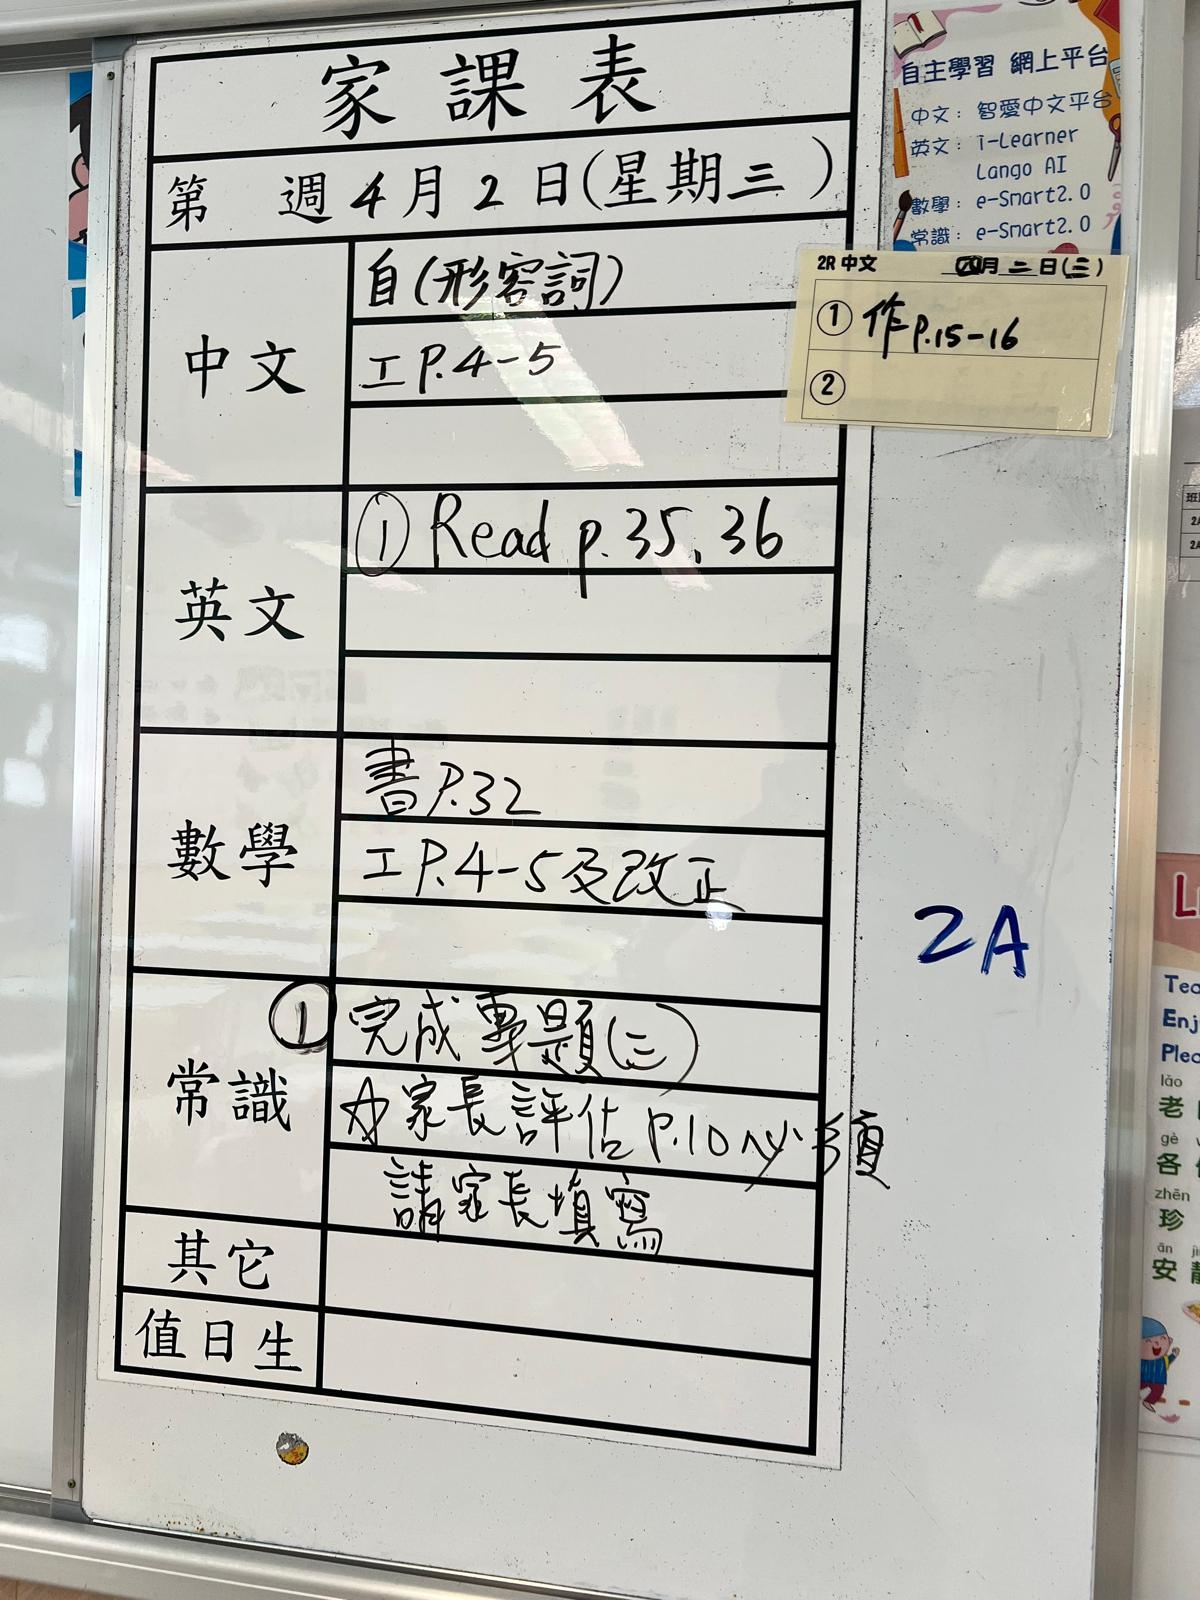 家課表
第 週4月2日(星期三)
中文
自(形容詞)
工P.4-5
英文
① Read p.35, 36
數學
書P.32
工P.4-5及改正
常識
① 完成專題(三)
☆家長評估 p.10必須
請家長填寫
其它
值日生
自主學習 網上平台
中文：智愛中文平台
英文：i-Learner
Lango AI
數學：e-Smart2.0
常識：e-Smart2.0
2R 中文 四月二日(三)
① 作p.15-16
②
2A
2A
2A
Enj
lǎo
老
gè
各
zhēn
珍
ān
安